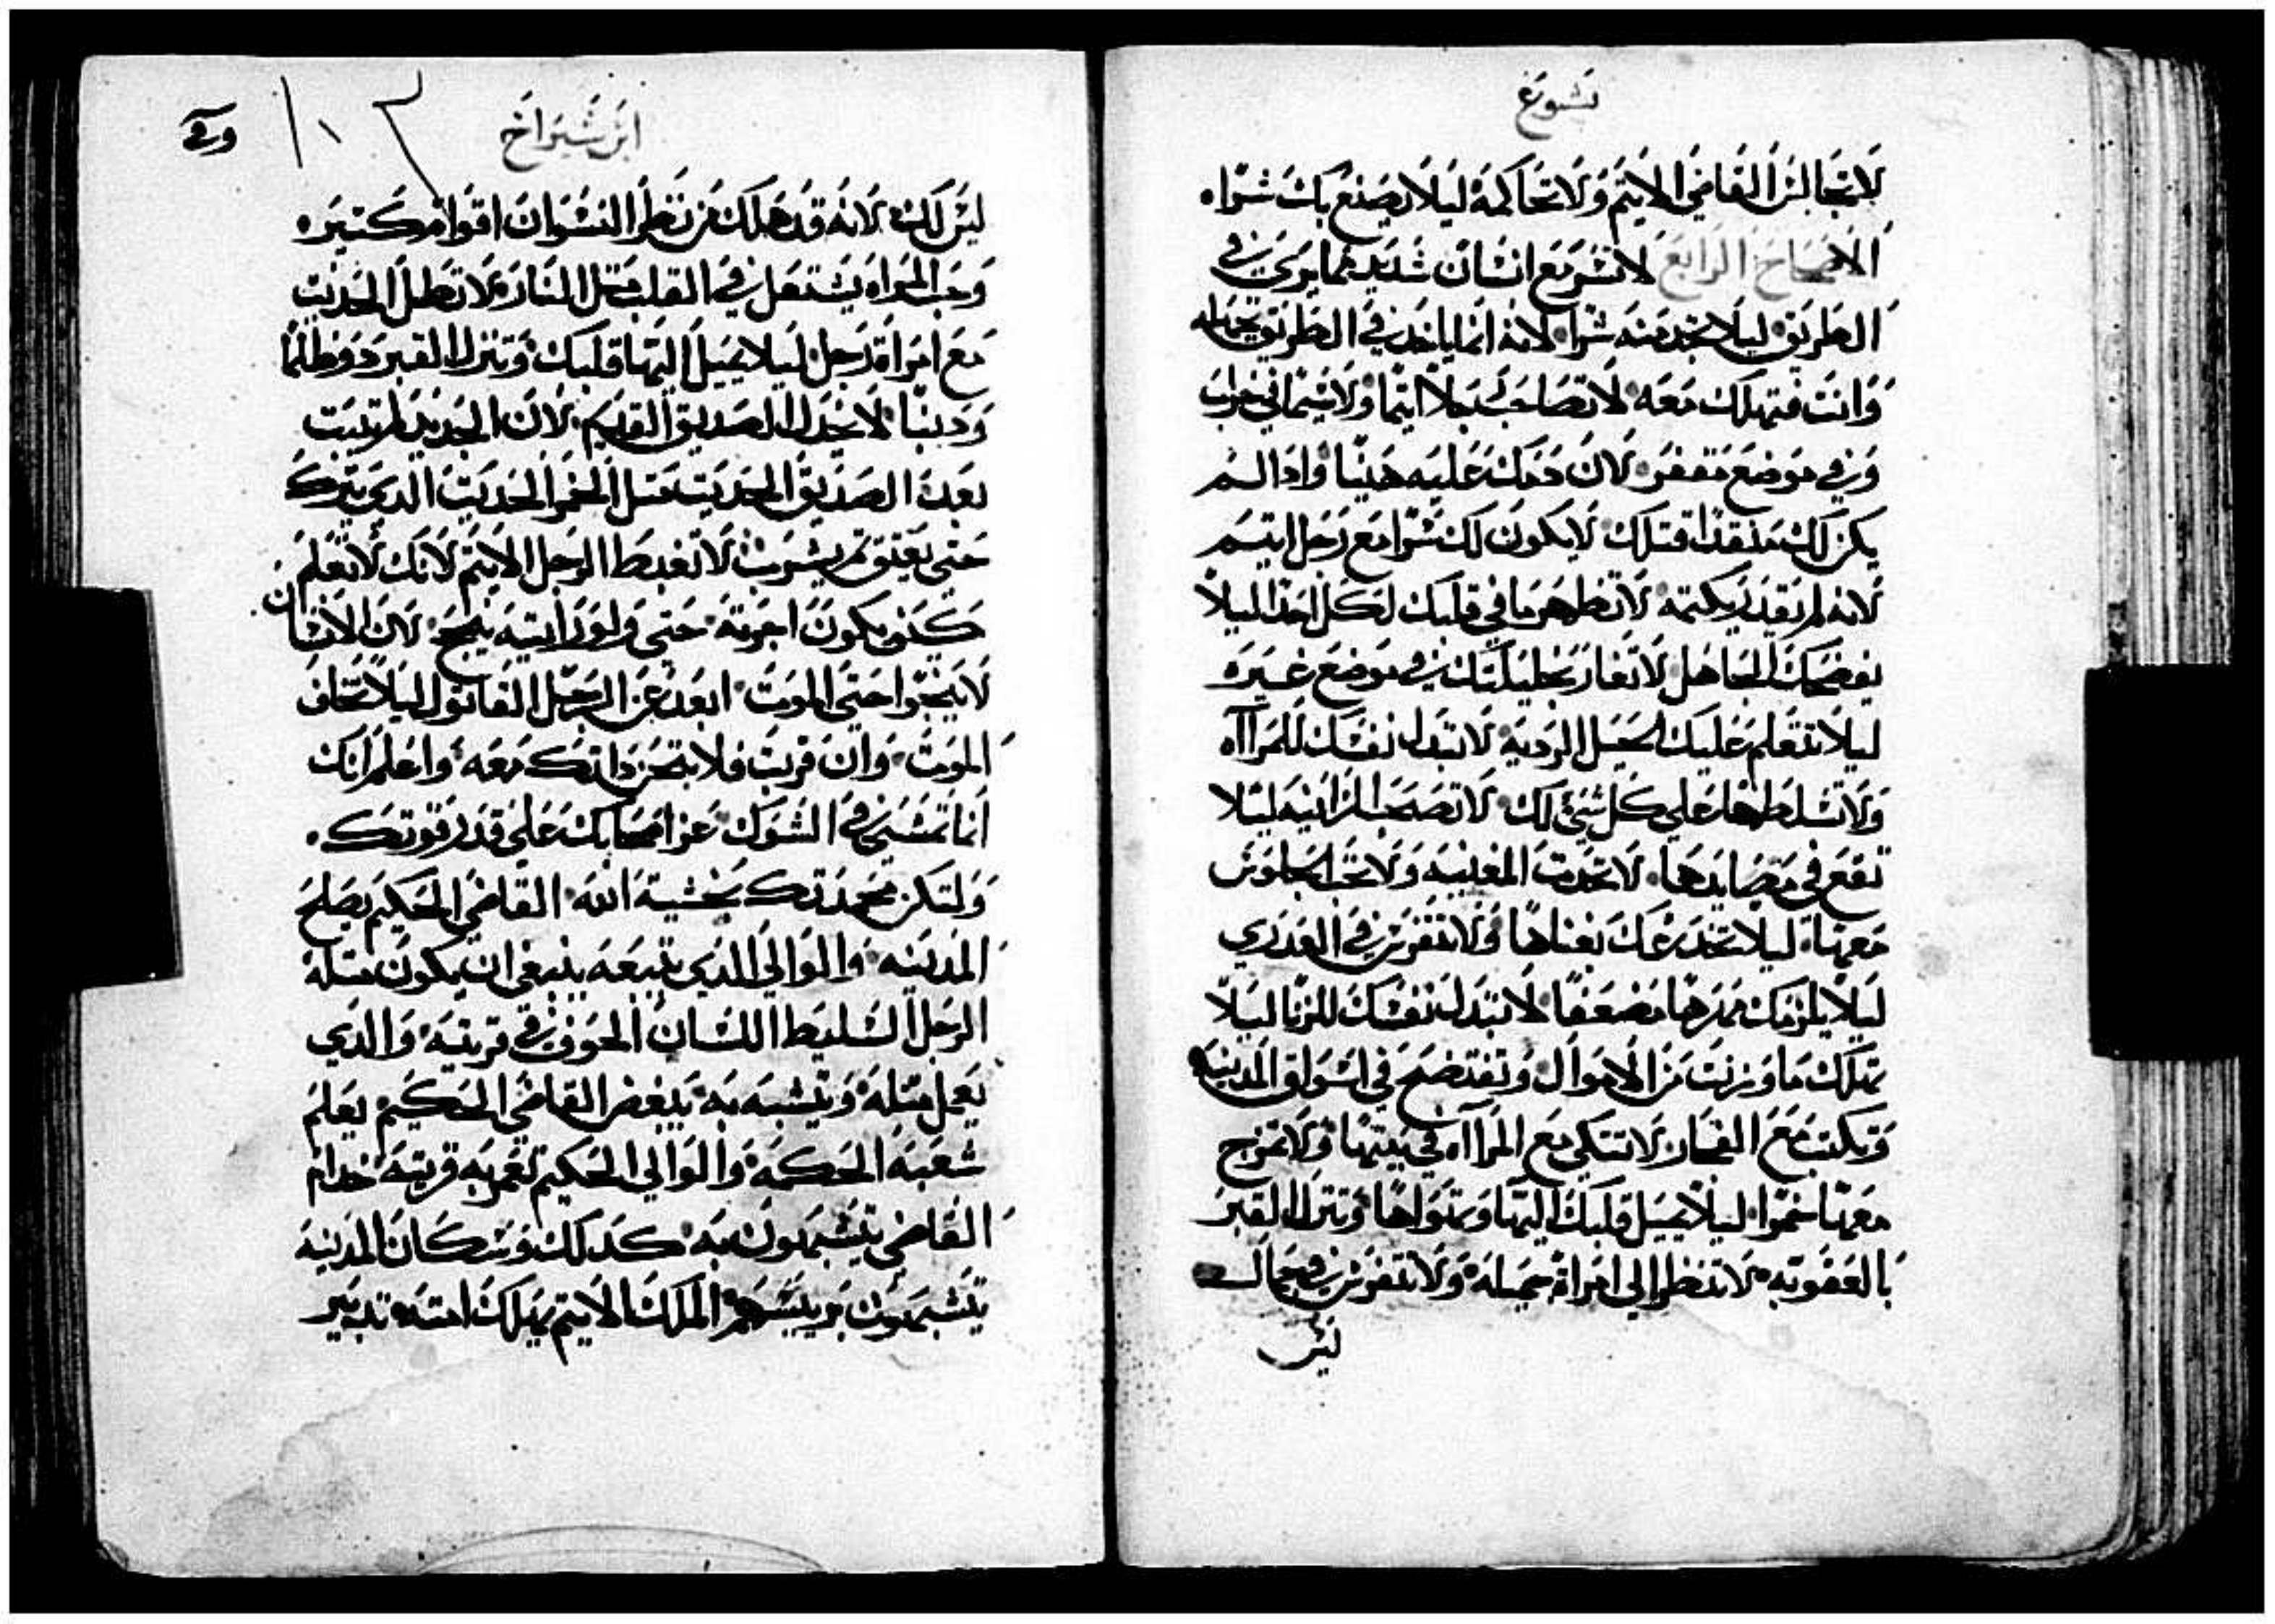 يشوع
لا تجالس القاضي الاثيم ولا تحاكمه ليلا يصنع بك شرا
الاصحاح الرابع لا تسر مع انسان شديد مما يري في
الطريق ليلا تجد منه شرا لانه انما ياخذ في الطريق
وانت فتهلك معه لا تصاحب رجلا اثيما ولا سيما في خراب
وفي موضع مقفر لان دمك عليه هينا واذا لم
يكن لك منقذا قتلك لا يكون لك سرا مع رجل اثيم
لانه لم يقدر يكتمه لا تظهر ما في قلبك لكل احد ليلا
يفضحك الجاهل لا تغار بحليلتك في موضع غيره
ليلا تتعلم عليك الحيل الرديه لا تبذل نفسك للمراآه
ولا تسلطها علي كل شي لك لا تصحب الزانيه ليلا
تقع في مصايدها لا تحدث المغنيه ولا تحب الجلوس
معها ليلا تخدعك بغناها ولا تتفرس في العذري
ليلا يلزمك مهرها مضعفا لا تبذل نفسك للزنا ليلا
تهلك ما ورثت من الاموال وتفتضح في اسواق المدينه
وتكتب مع الفجار لا تتكي مع المراآه في بيتها ولا تمزج
معها خمرا ليلا يميل قلبك اليها وتهواها وتنزل القبر
بالعقوبه لا تنظر الي امراه جميله ولا تتفرس في جمال
ليس
ابن شيراخ
ليس لك لانه قد هلك من نظر النسوان اقوام كتيره
وحب المراه يشتعل في القلب متل النار لا تطل الحديت
مع امراة رجل ليلا يميل اليها قلبك وتنزل القبر دو ظلما
ودينا لا تخذل الصديق القديم لان الجديد لم يتبت
بعد الصديق الحديت متل الخمر الحديت الدي يترك
حتي يعتق تم يشرب لا تغبط الرجل الاتيم لانك لا تعلم
كيف يكون اخرته حتي ولو رايته ينجح لان الانسان
لا ينجوا حتي الموت ابعد عن الرجل القاتول ليلا تخاف
الموت وان قربت فلا تضر داتك معه واعلم انك
انما تمشي في الشوك عز اصحابك علي قدر قوتك
ولتكن محمدتك بخشية الله القاضي الحكيم يصلح
المدينه والوالي الدي يتبعه ينبغي ان يكون متله
الرجل السليط اللسان المخوف في قريته والدي
يعمل متله ويتشبه به يبغض القاضي الحكيم يعلم
شعبه الحكمه والوالي الحكيم تعمر به قريته خدام
القاضي يتشبهون به كدلك وسكان المدينه
يتشبهون بريسهم الملك الاتيم يهلك امته تدبير